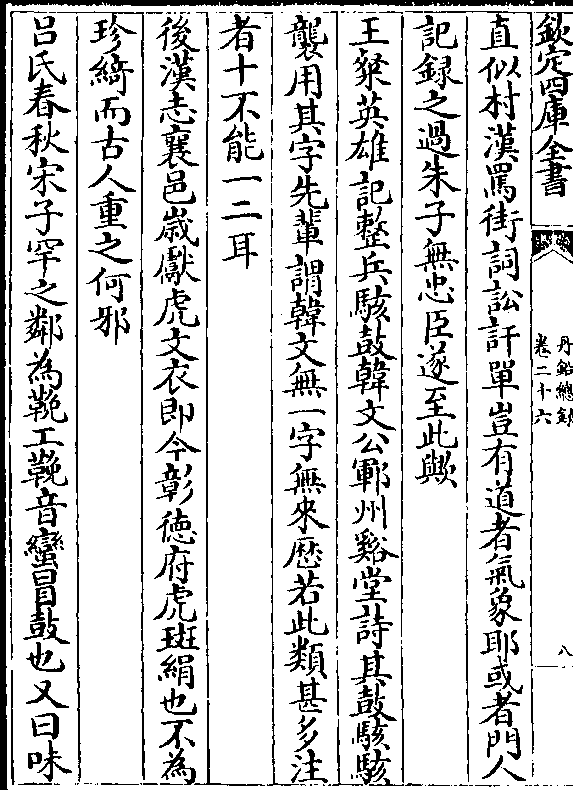 欽定四庫全書
丹鉛總錄
卷二十六
八
直似村漢罵街詞訟訐單豈有道者氣象耶或者門人
記録之過朱子無忠臣遂至此歟
王粲英雄記整兵駭鼓韓文公鄆州谿堂詩其鼓駭駭
襲用其字先輩謂韓文無一字無來歷若此類甚多注
者十不能一二耳
後漢志襄邑歳獻虎文衣即今彰德府虎斑絹也不為
珍綺而古人重之何邪
呂氏春秋宋子罕之鄰為鞔工鞔音蠻冒鼓也又曰味